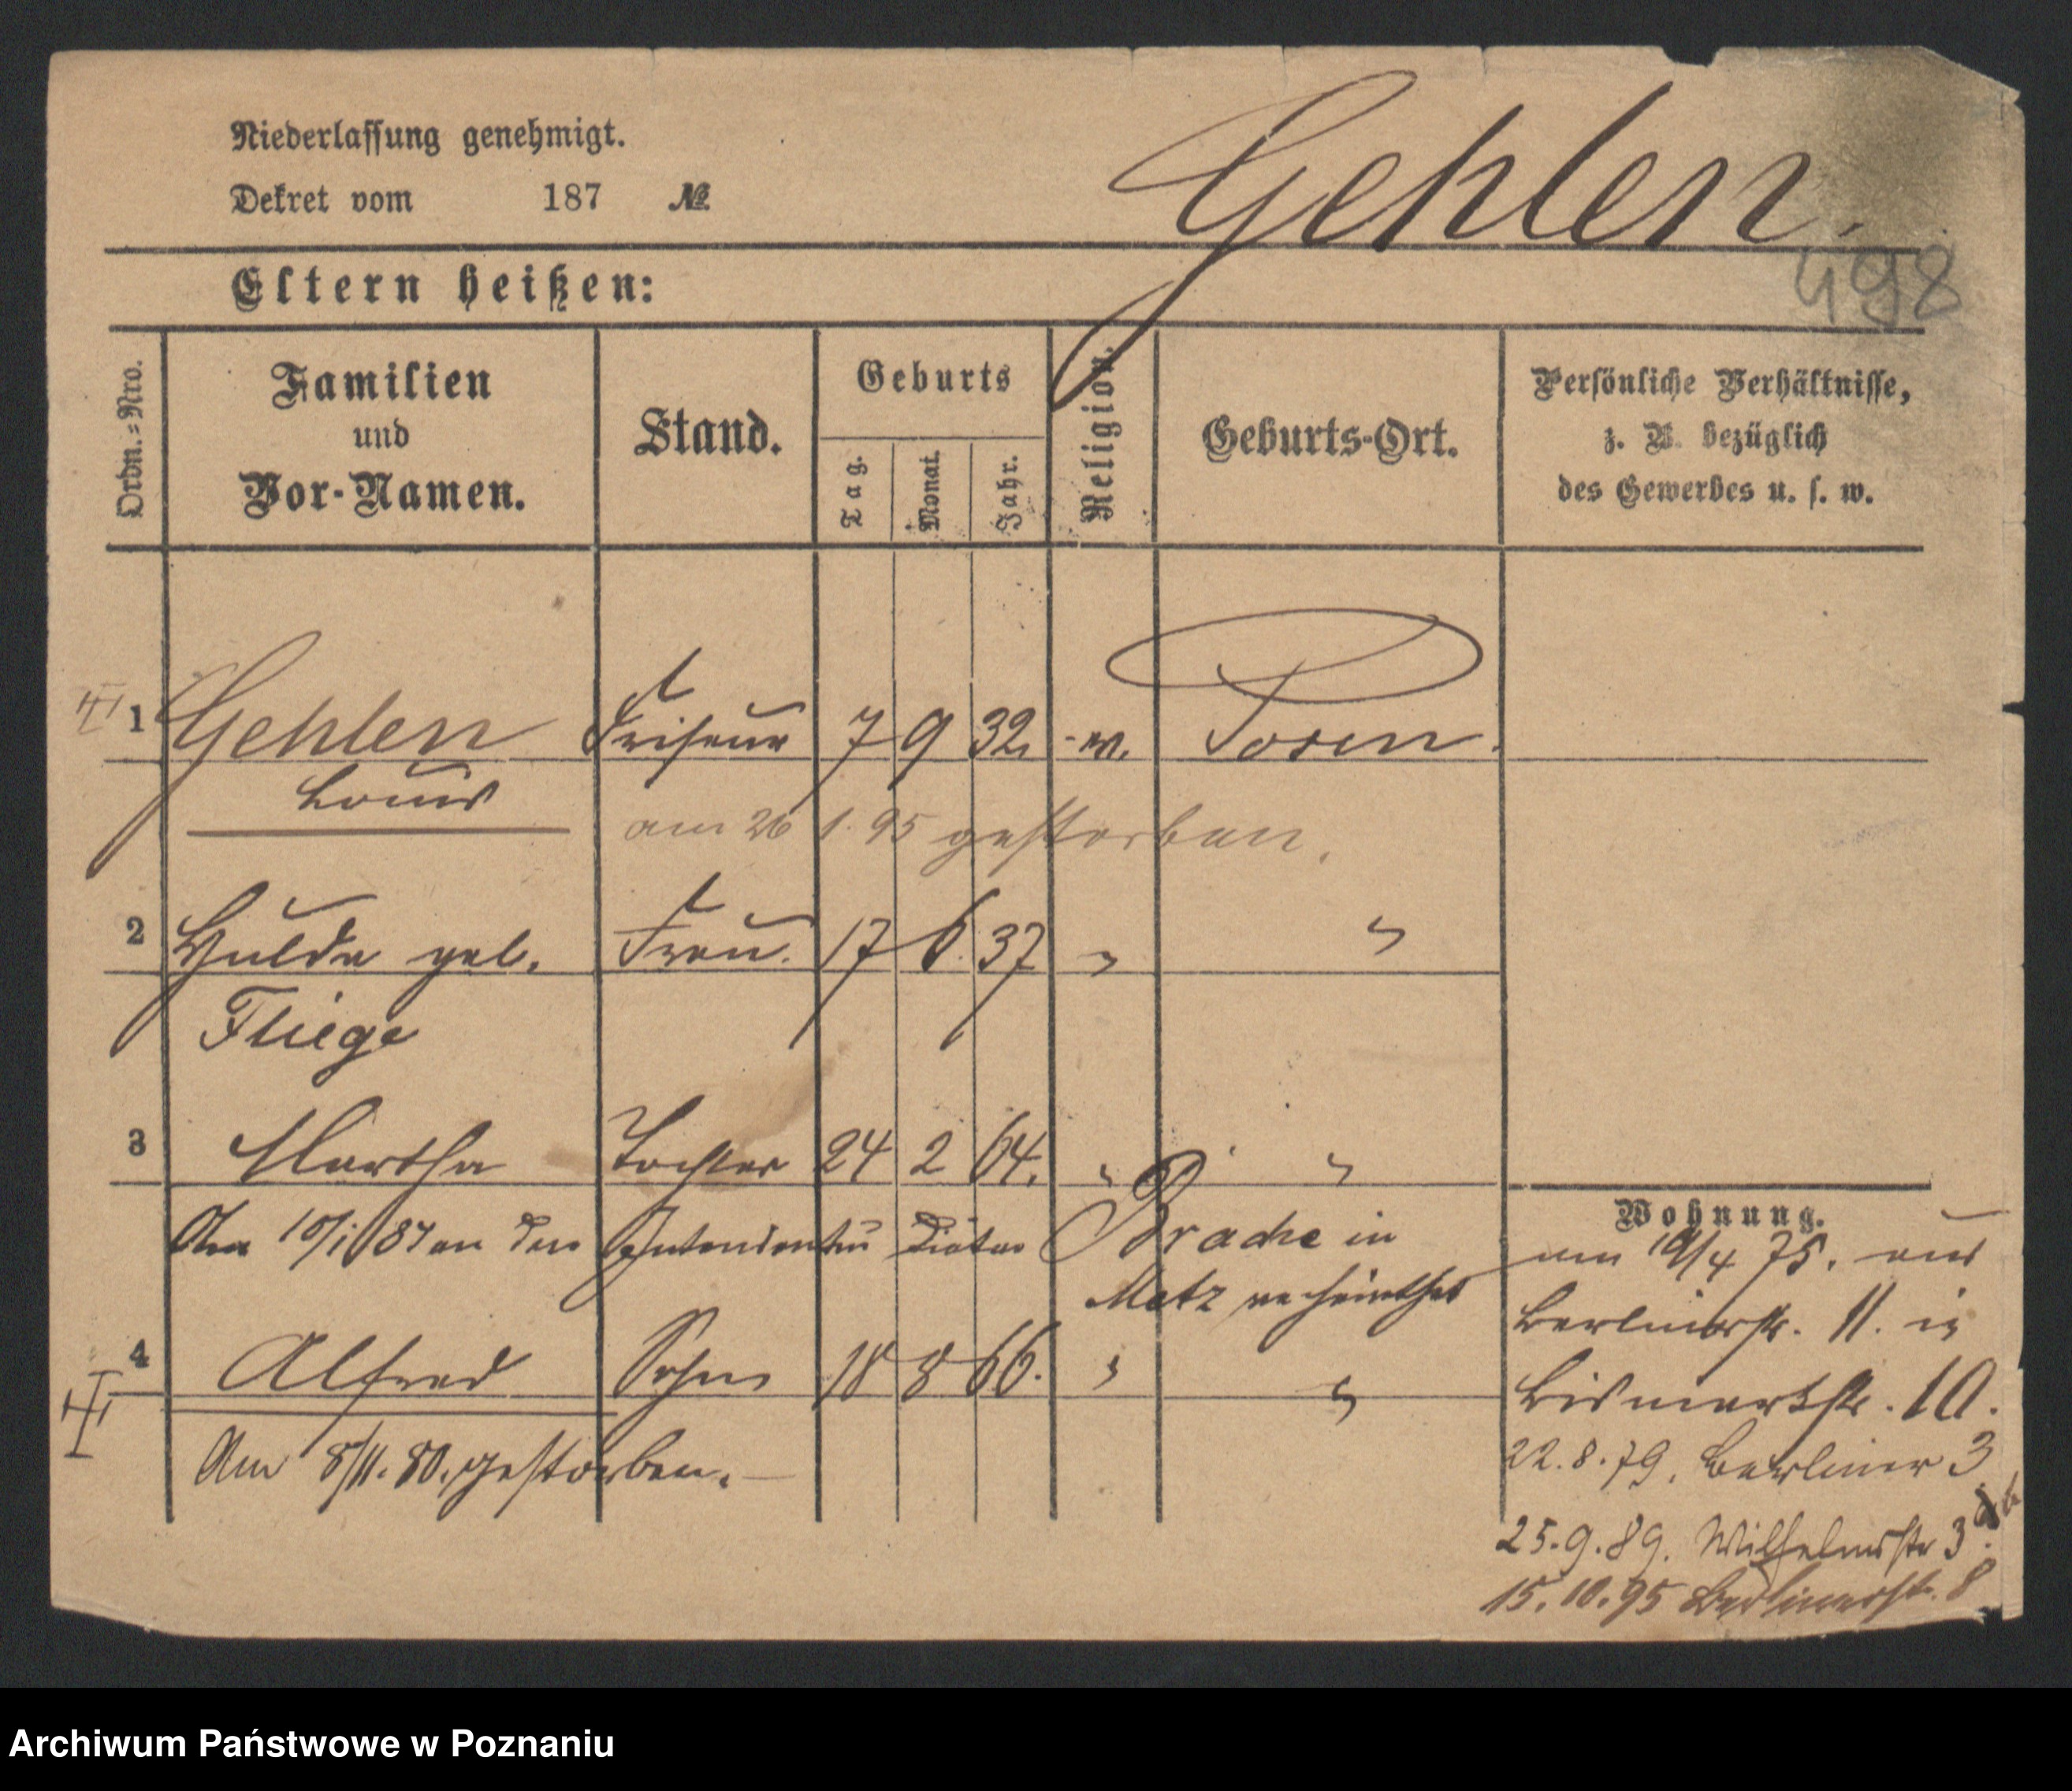 Niederlassung genehmigt.
Dekret vom 187 №
Gehlen.
498
Eltern heißen:
Ordn.=Nro.
Familien
und
Vor-Namen.
Stand.
Geburts
Tag.
Monat.
Jahr.
Religion.
Geburts-Ort.
Persönliche Verhältnisse,
z. B. bezüglich
des Gewerbes u. s. w.
1 Gehlen Friseur 7 9 32 Posen.
Louis
am 26 1. 95 gestorben.
2 Hulda geb. Frau. 17 6. 37 "
Fliege
3 Martha Tochter 24 2 64. " "
Am 10/1 87 an den Intendantur Diätar Brache in
Metz verheirathet
4 Alfred Sohn 18 8 66. " "
Am 8/11. 80. gestorben.
Wohnung.
am 19/4 75. aus
Berlinerstr. 11. in
Bismarkstr. 10.
22.8.79. Berliner 3
25.9.89. Wilhelmstr 3
15.10.95 Berlinerstr. 8
Archiwum Państwowe w Poznaniu